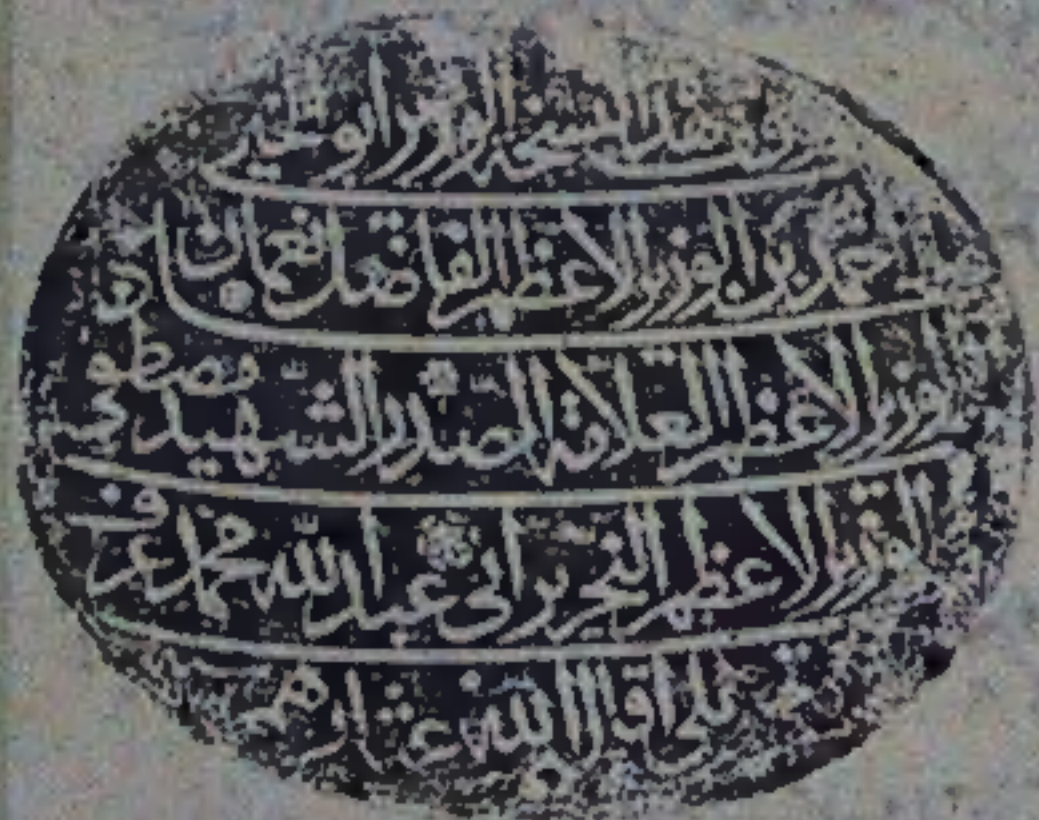 وقف هذه النسخة الوزير ابو الخير
احمد بن الوزير الاعظم الفاضل نعمان بن
الوزير الاعظم العلامة الصدر الشهيد مصطفى بن
الوزير الاعظم النحرير ابي عبد الله محمد عرف
بكوپريلي اقال الله عثارهم